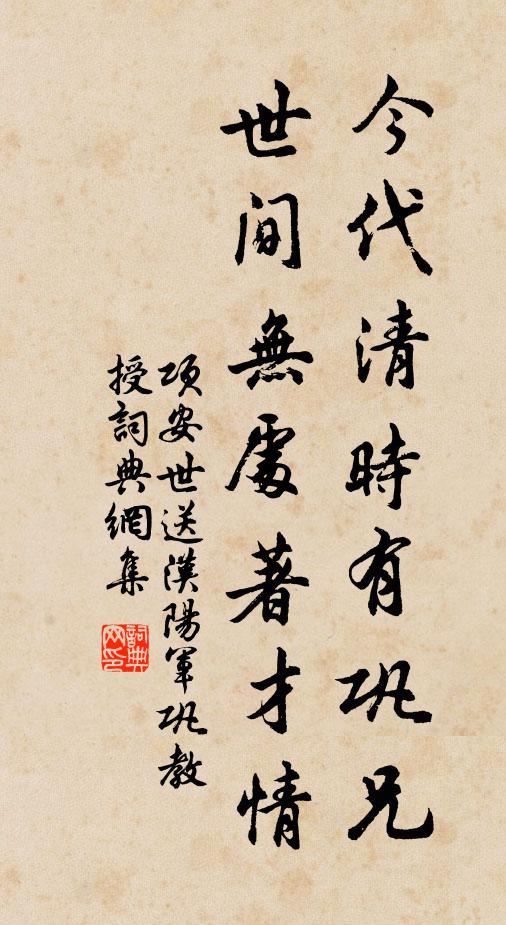 今代清時有巩兄
世间無處著才情
项安世送漢陽軍巩教
授詞典網集
詞典網印